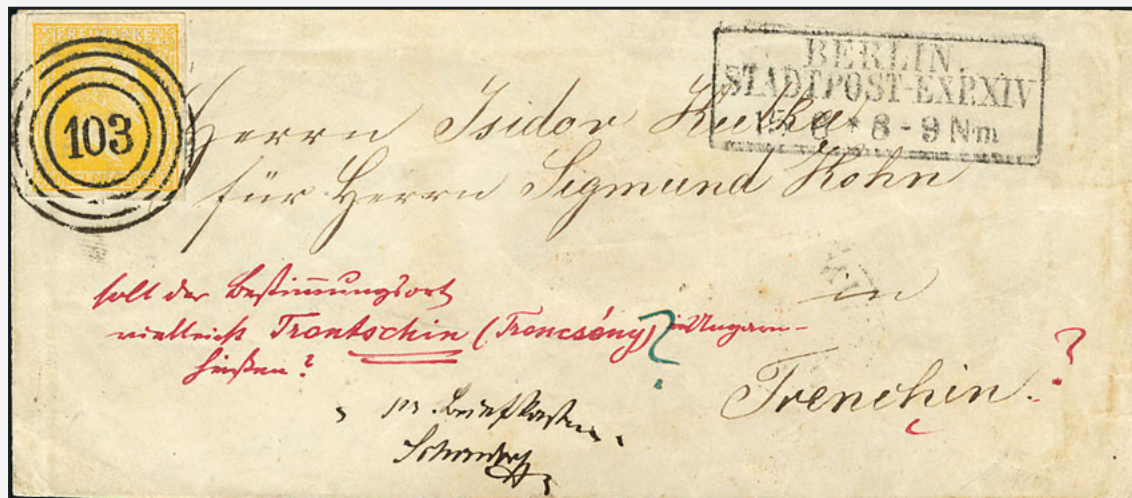 FREIMARKE
103
BERLIN
STADTPOST-EXP.XIV
8 - 9 Nm
Herrn Isidor Kulka
für Herrn Sigmund Kohn
in
Trenchin.
?
soll der Bestimmungsort
vielleicht Trentschin (Trencsény) in Ungarn
heißen?
?
pr. Briefkasten